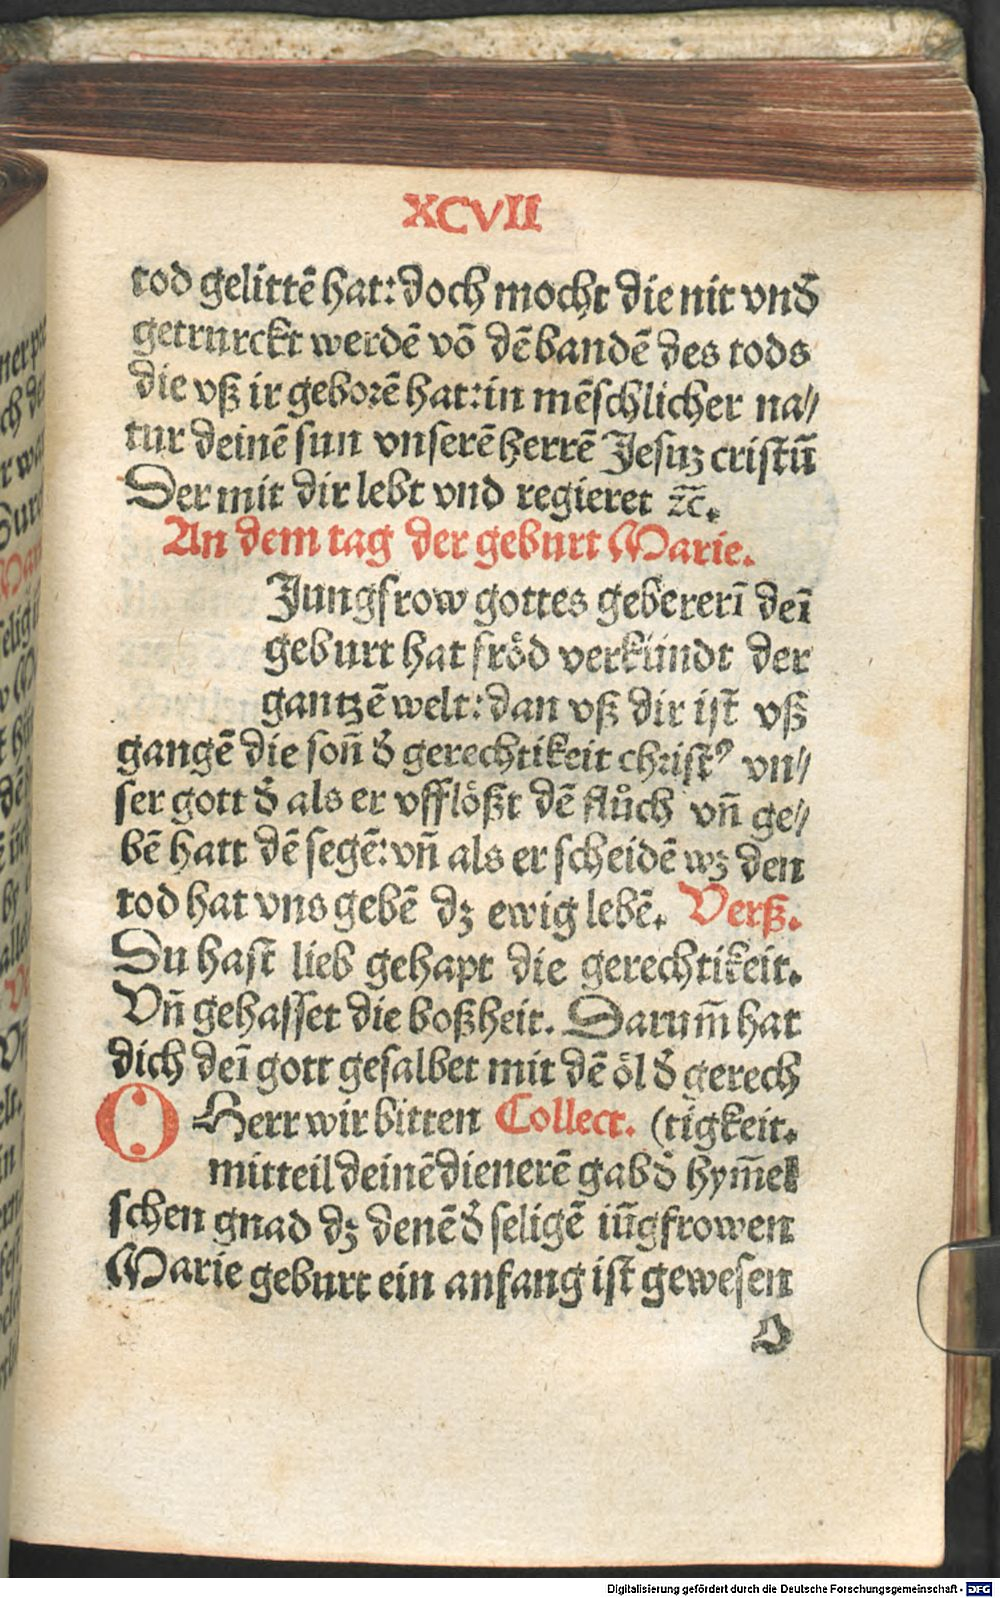 XCVII
tod gelittē hat: doch mocht die nit vnd̄
getrurckt werdē vō dē bandē des tods
die vß ir geborē hat: in mēschlicher na⸗
tur deinē sun vnserē herrē Jesuȝ cristū
Der mit dir lebt vnd regieret ⁊c̄.
An dem tag der geburt Marie.
Jungfrow gottes gebererī deī
geburt hat fröd verkündt der
gantzē welt: dan vß dir ist vß
gangē die soñ d̄ gerechtikeit christꝰ vn⸗
ser gott d̄ als er vfflößt dē flůch vñ ge⸗
bē hatt dē segē: vñ als er scheidē wȝ den
tod hat vns gebē dȝ ewig lebē. Verß.
Du hast lieb gehapt die gerechtikeit.
Vñ gehasset die boßheit. Darum̄ hat
dich deī gott gesalbet mit dē öl d̄ gerech
O Herr wir bitten Collect. (tigkeit.
mitteil deinē dienerē gab d̄ hym̄el
schen gnad dȝ denē d̄ seligē iūgfrowen
Marie geburt ein anfang ist gewesen
Digitalisierung gefördert durch die Deutsche Forschungsgemeinschaft - DFG